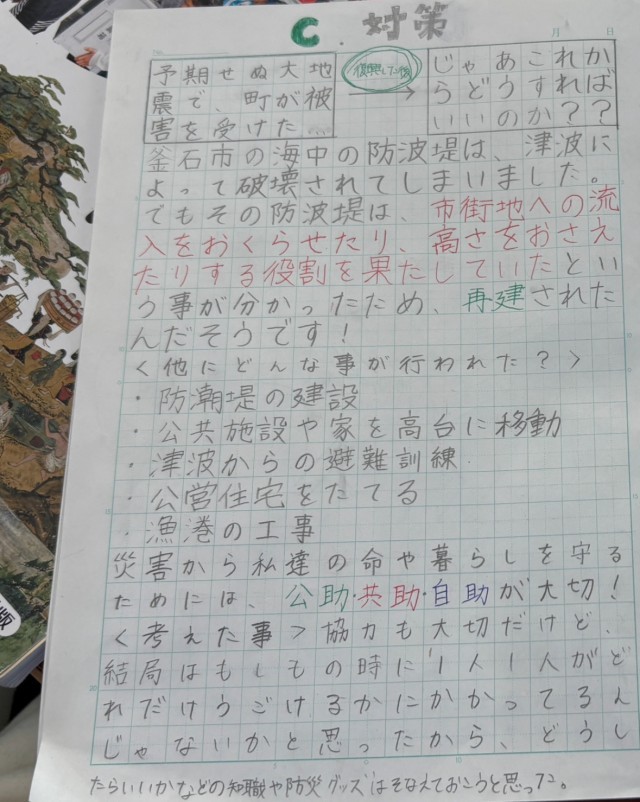 C. 対策
月 日
予期せぬ大地
震で、町が被
害を受けた…
復興していく
じゃあこれか
らどうすれば
いいのか？？
釜石市の海中の防波堤は、津波に
よって破壊されてしまいました。
でもその防波堤は、市街地への流
入をおくらせたり、高さをおさえ
たりする役割を果たしていたとい
う事が分かったため、再建された
んだそうです！
<他にどんな事が行われた？>
・防潮堤の建設
・公共施設や家を高台に移動
・津波からの避難訓練
・公営住宅をたてる
・漁港の工事
災害から私達の命や暮らしを守る
ためには、公助・共助・自助が大切！
<考えた事>協力も大切だけど、
結局はもしもの時に1人1人がど
れだけうごけるかにかかってるん
じゃないかと思ったから、どうし
たらいいかなどの知職や防災グッズはそなえておこうと思った。
版